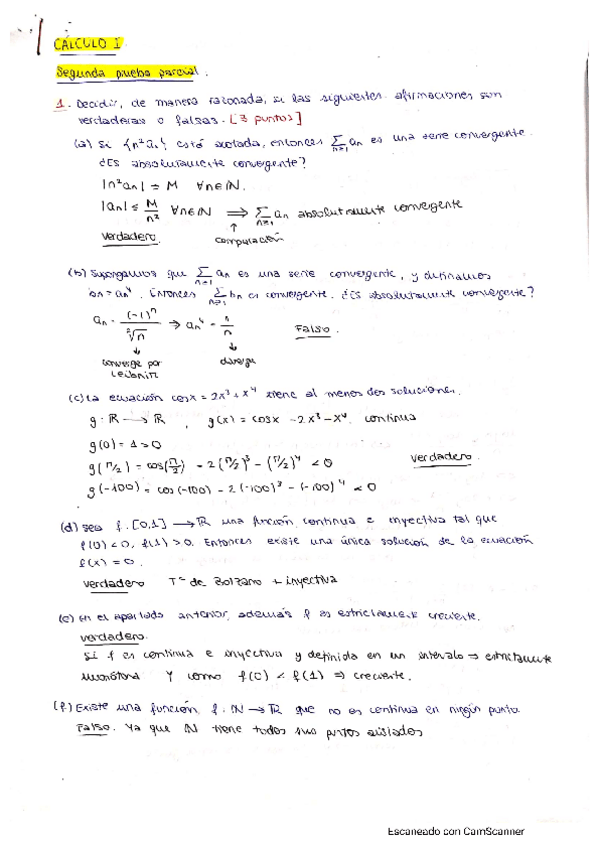 CÁLCULO I
Segunda prueba parcial.
1. Decidir, de manera razonada, si las siguientes afirmaciones son
verdaderas o falsas. [3 puntos]
(a) Si {n²an} está acotada, entonces Σ an es una serie convergente.
n≥1
¿Es absolutamente convergente?
|n²an| ≤ M ∀n∈ℕ.
|an| ≤ M/n² ∀n∈ℕ ⟹ Σ an absolutamente convergente
n≥1
↑
verdadero. comparación
(b) Supongamos que Σ an es una serie convergente, y definamos
n≥1
bn = an⁴. Entonces Σ bn es convergente. ¿Es absolutamente convergente?
n≥1
an = (-1)ⁿ/√n → an⁴ = 1/n
Falso.
↓ ↓
converge por diverge
Leibnitz
(c) La ecuación cosx = 2x³ + x⁴ tiene al menos dos soluciones.
g: ℝ → ℝ, g(x) = cosx - 2x³ - x⁴ continua
g(0) = 1 > 0
g(π/2) = cos(π/2) - 2(π/2)³ - (π/2)⁴ < 0 verdadero.
g(-100) = cos(-100) - 2(-100)³ - (-100)⁴ < 0
(d) Sea f: [0,1] → ℝ una función continua e inyectiva tal que
f(0) < 0, f(1) > 0. Entonces existe una única solución de la ecuación
f(x) = 0.
verdadero Tª de Bolzano + inyectiva
(e) En el apartado anterior, además f es estrictamente creciente.
verdadero.
Si f es continua e inyectiva y definida en un intervalo ⇒ estrictamente
monótona Y como f(0) < f(1) ⇒ creciente.
(f) Existe una función f: ℕ → ℝ que no es continua en ningún punto
Falso. Ya que ℕ tiene todos sus puntos aislados
Escaneado con CamScanner